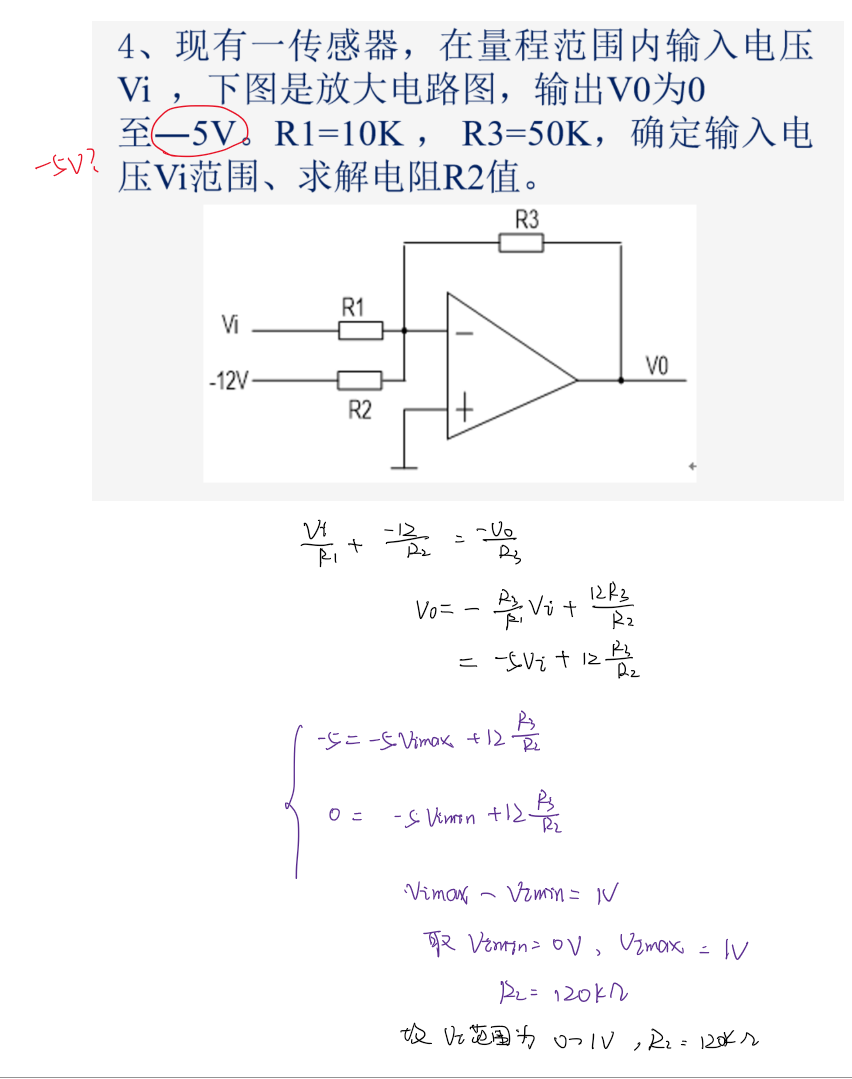 4、现有一传感器，在量程范围内输入电压
Vi ，下图是放大电路图，输出V0为0
至—5V。R1=10K， R3=50K，确定输入电
-5V?
压Vi范围、求解电阻R2值。
R3
R1
Vi
-12V
R2
V0
Vi/R1 + -12/R2 = -V0/R3
V0 = - R3/R1 Vi + 12R3/R2
= -5Vi + 12 R3/R2
-5 = -5Vimax + 12 R3/R2
0 = -5Vimin + 12 R3/R2
Vimax - Vimin = 1V
取 Vimin = 0V、Vimax = 1V
R2 = 120kΩ
故 Vi范围为 0~1V，R2 = 120kΩ